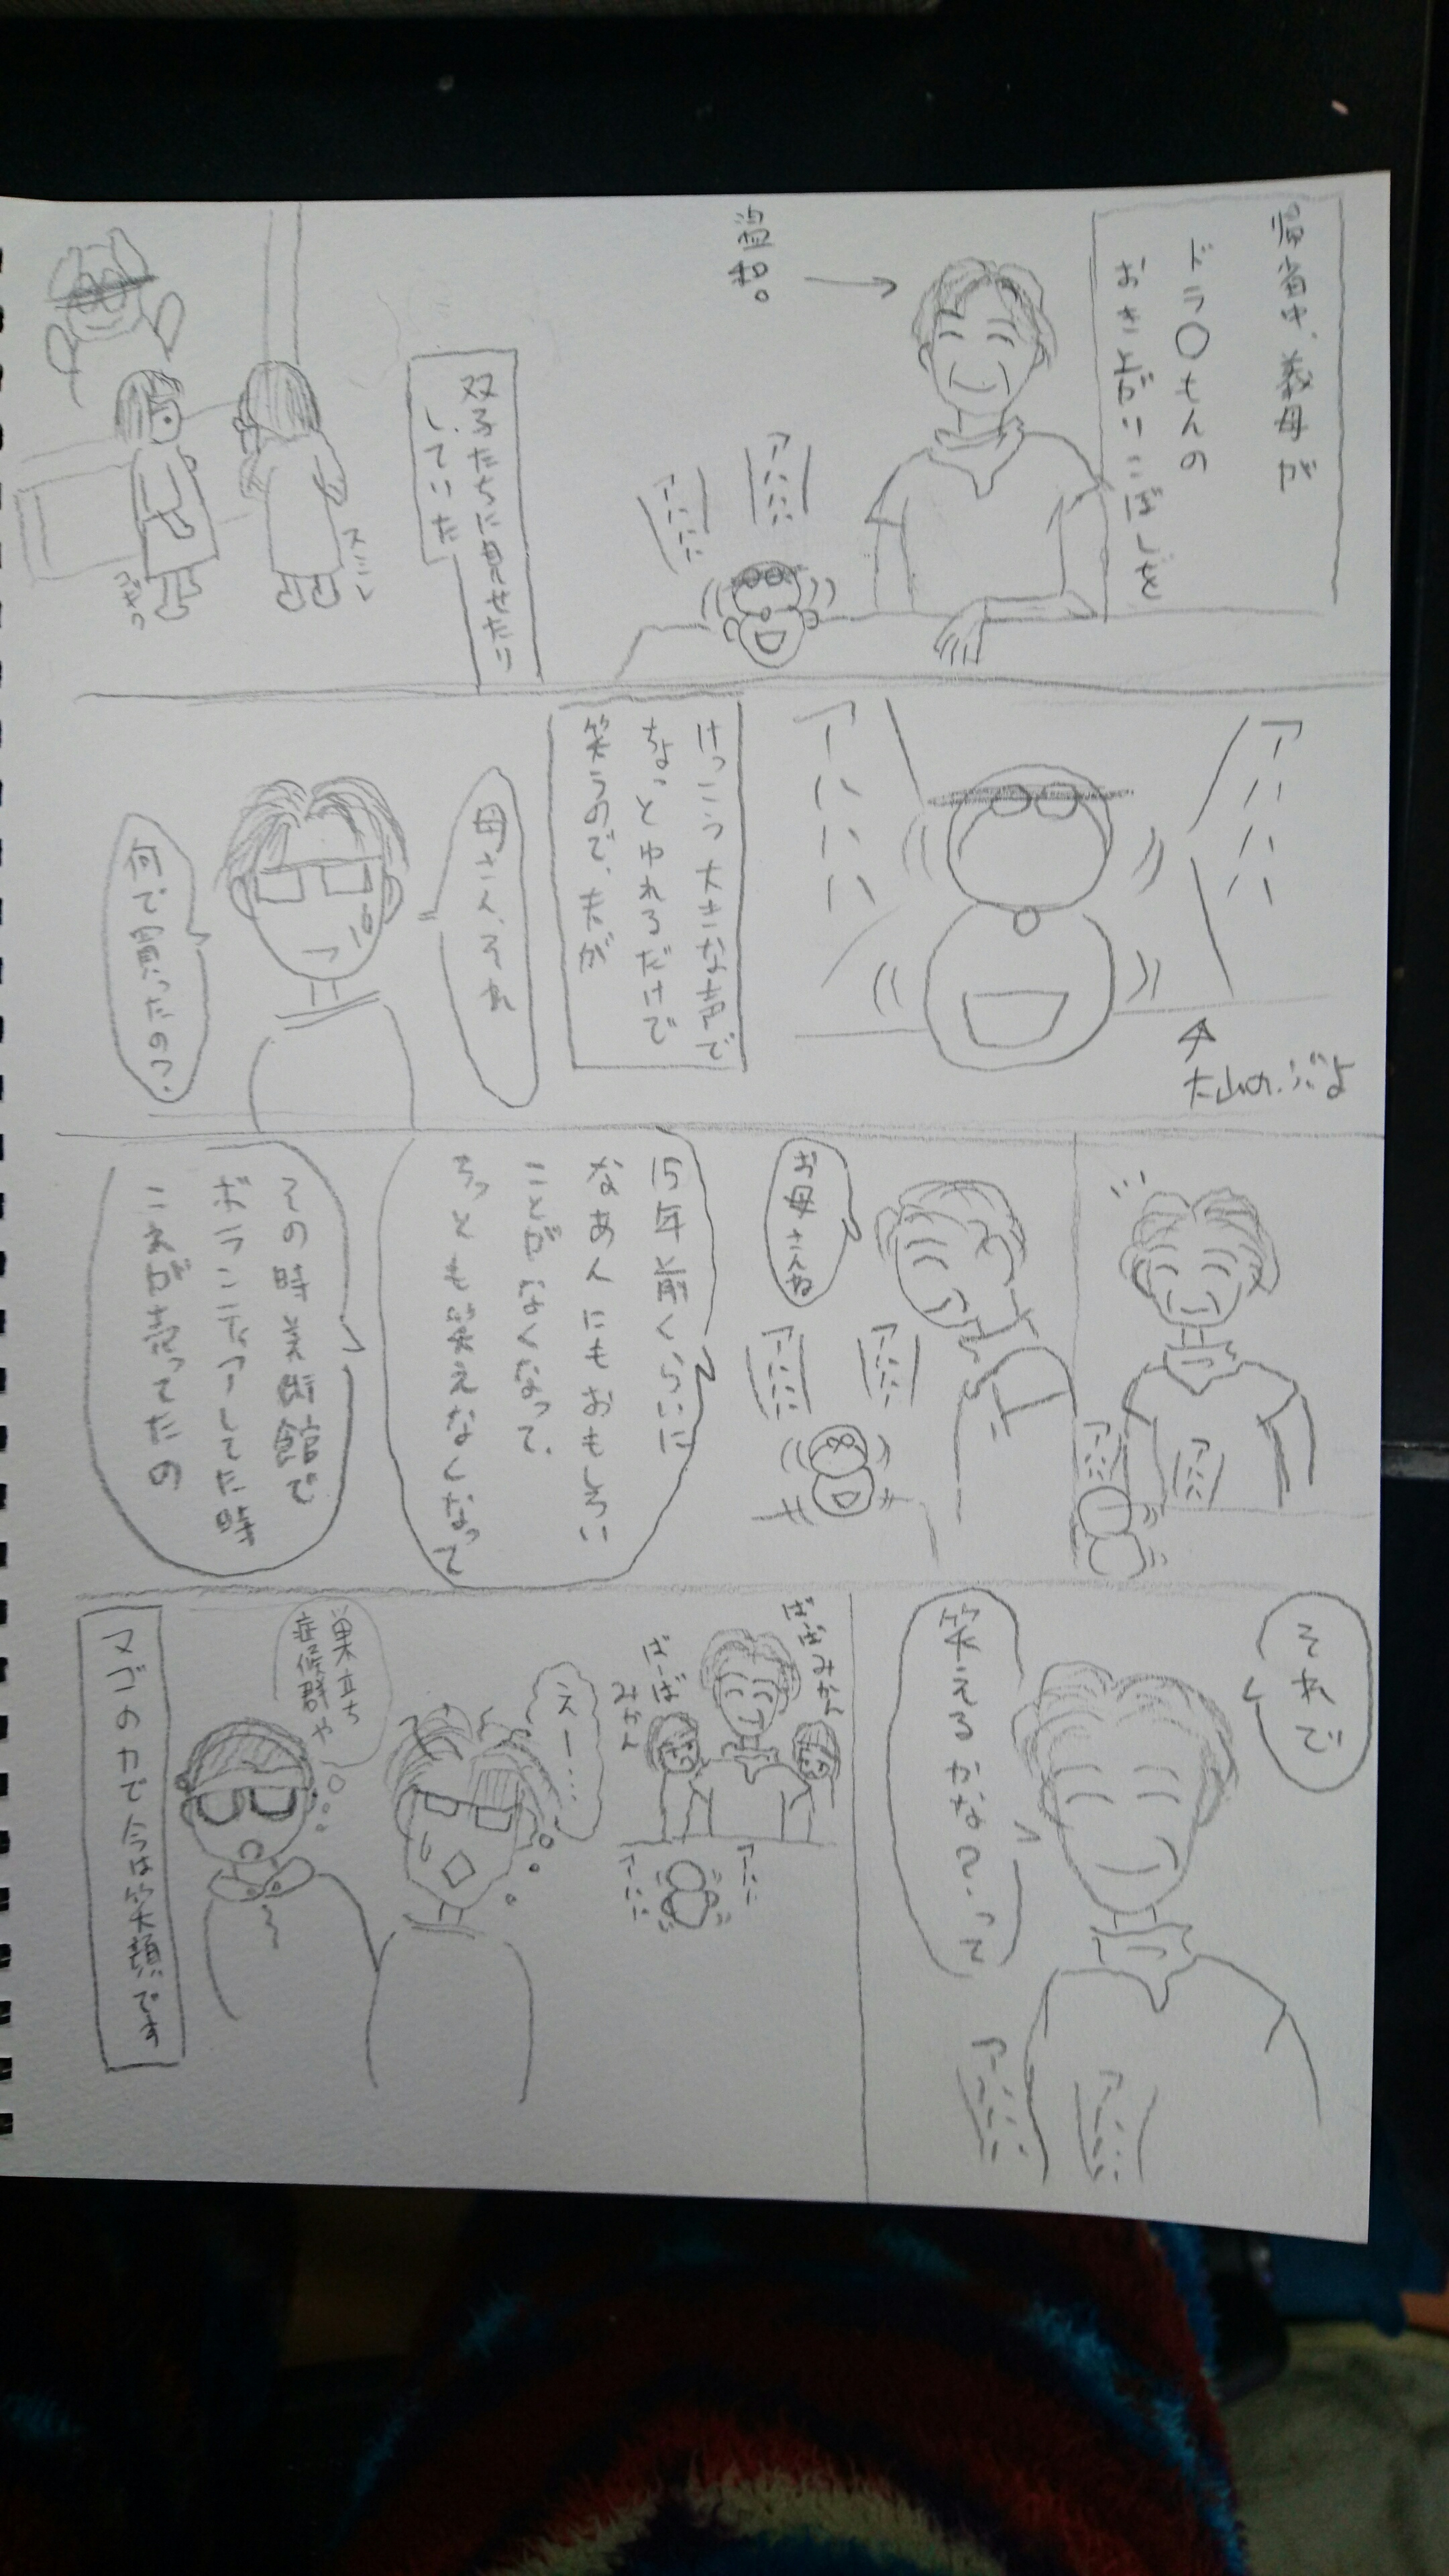 帰省中、義母が
ドラ〇もんの
おき上がりこぼしを
アハハハ
アハハハ
双子たちに見せたり
していた
スミレ
アハハハ
↑
大山のぶよ
アハハハ
けっこう大きな声で
ちょっとゆれるだけで
笑うので、夫が
母さん、それ
何で買ったの?
アハハハ
アハハハ
お母さんね
アハハハ
アハハハ
15年前くらいに
なあんにもおもしろい
ことがなくなって、
ちっとも笑えなくなって
その時美術館で
ボランティアしてた時
これが売ってたの
それで
笑えるかなー、って
アハハハ
アハハハ
ばーばみかん
ばーば
みかん
アハハ
アハハ
えー…
巣立ち
症候群や
マゴの力で今は笑顔です